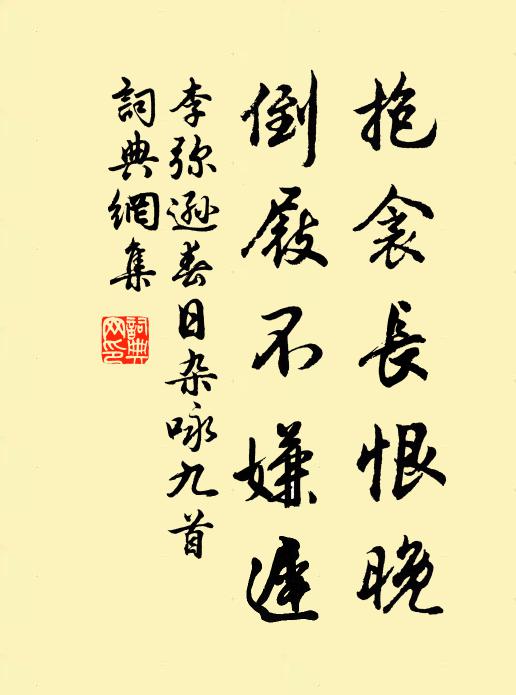 抱衾長恨晚
倒屐不嫌遲
李弥遜春日杂咏九首
詞典網集
詞典
网印